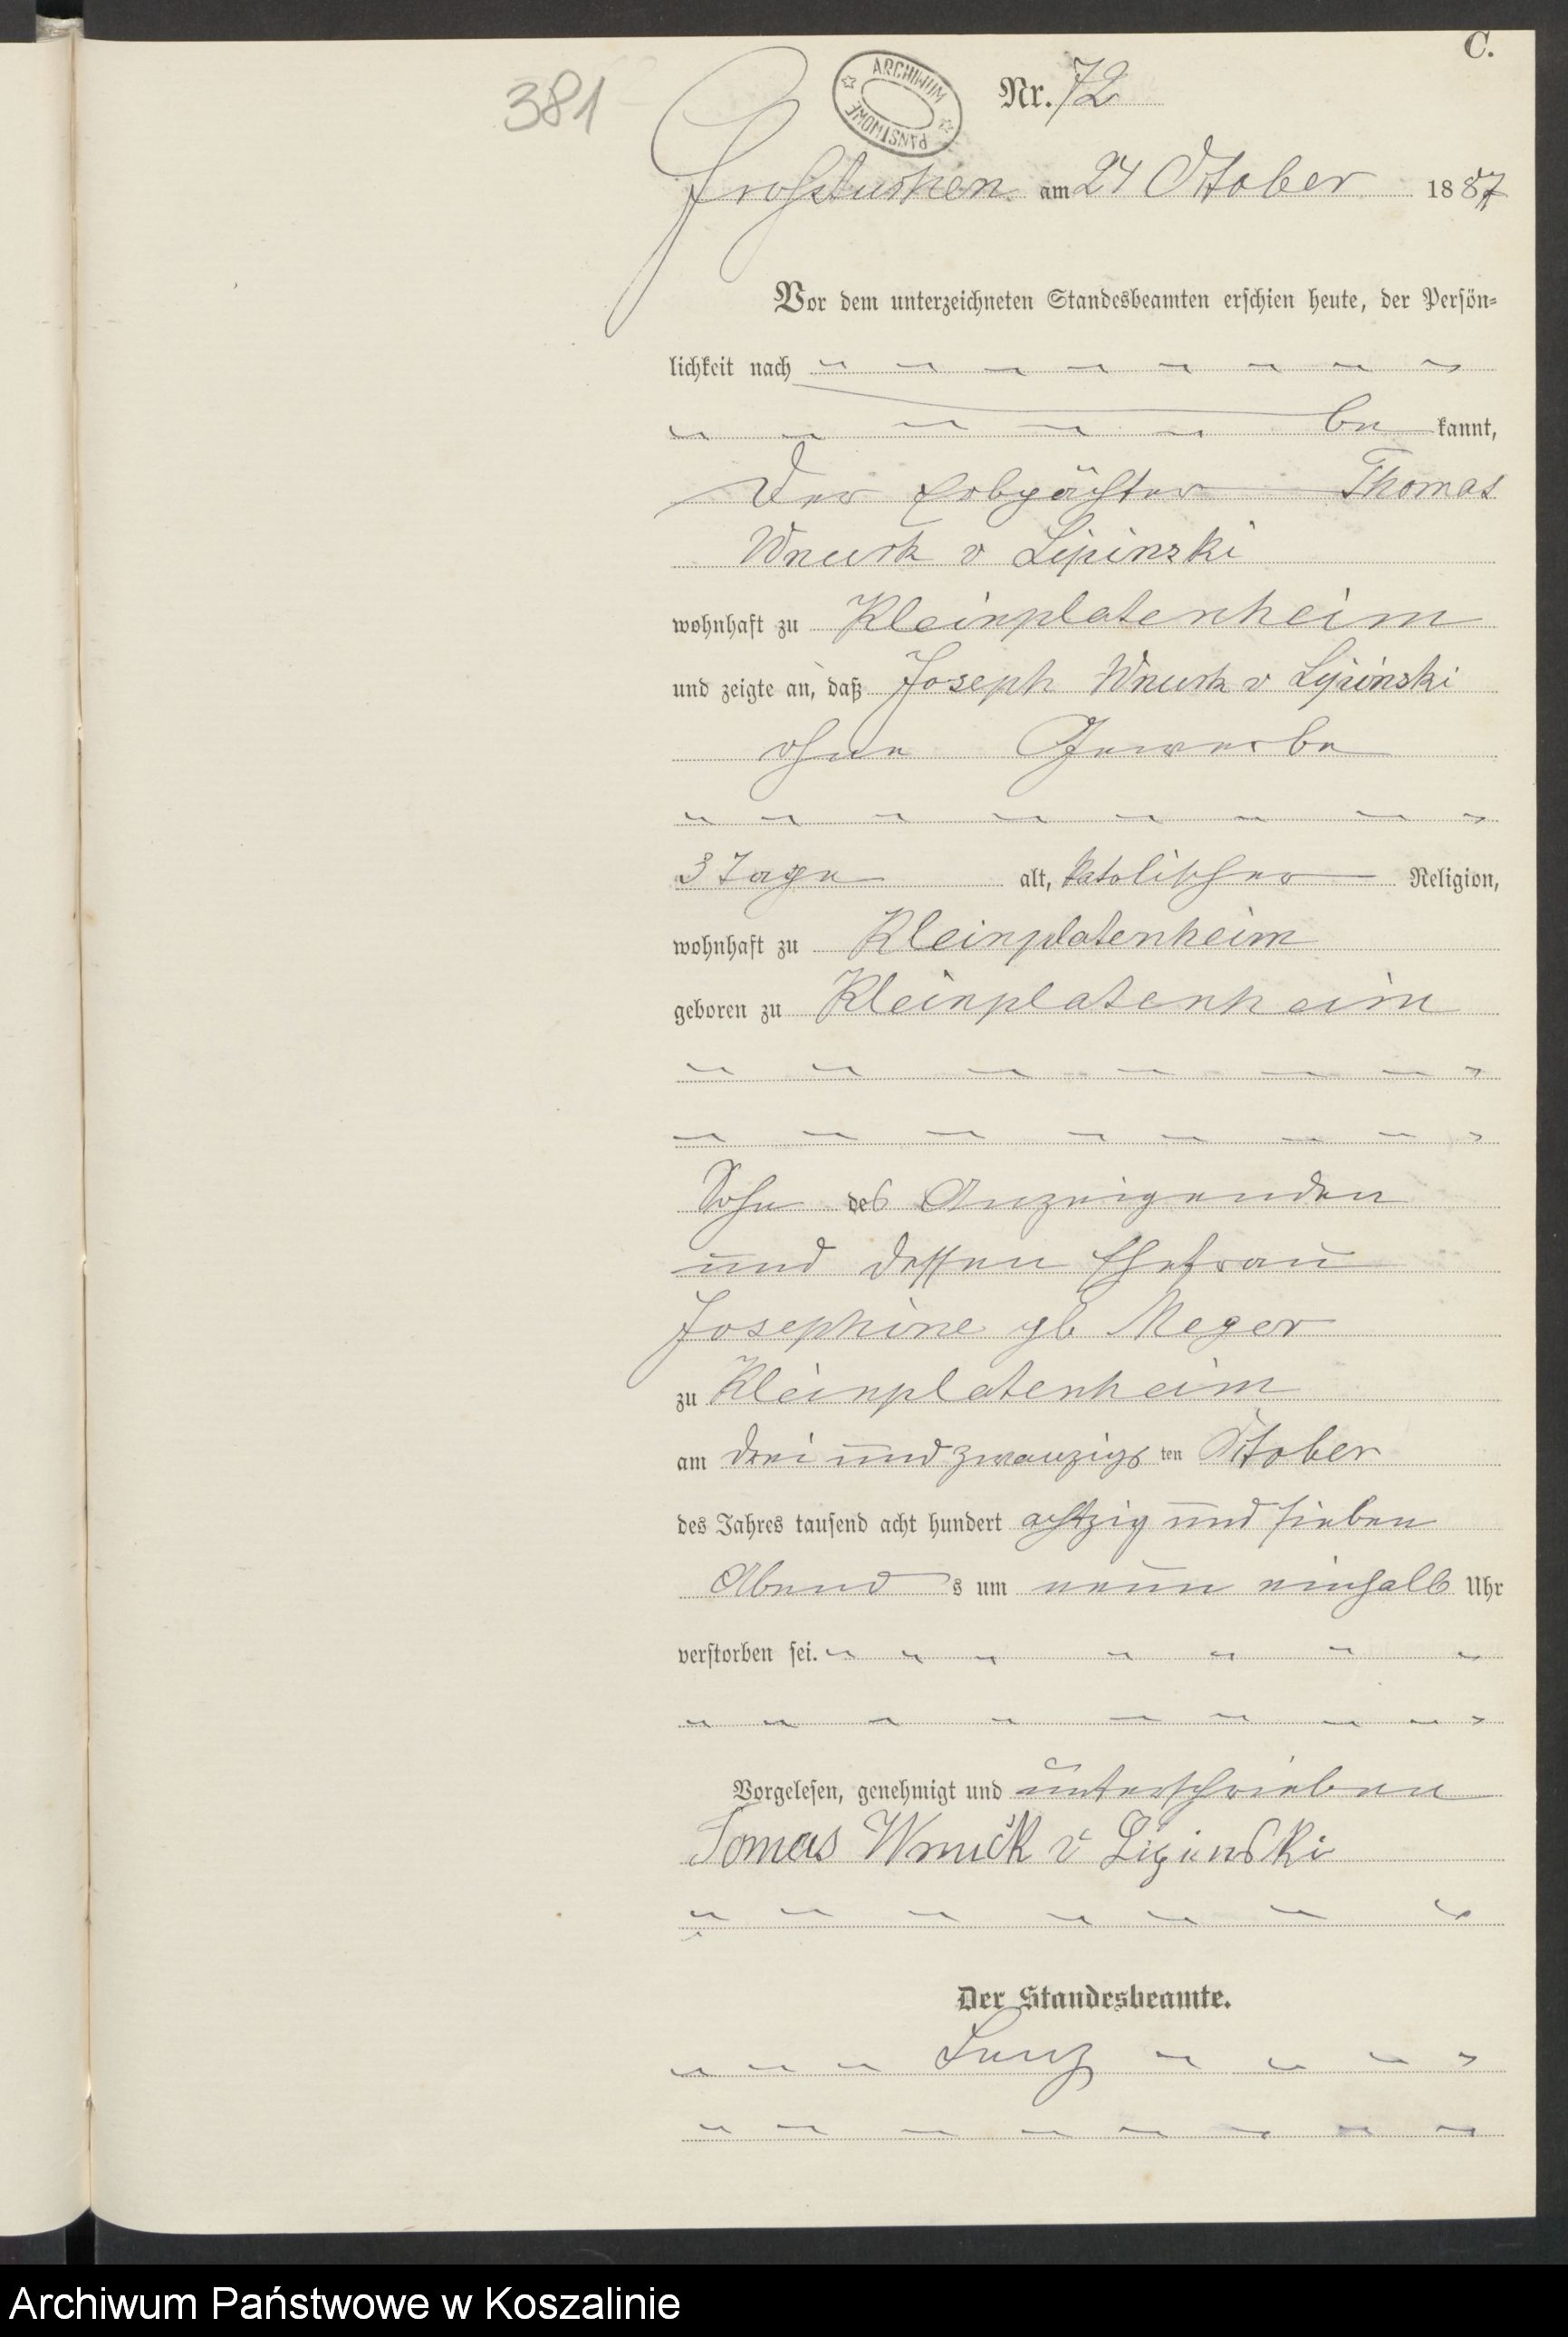 C.
381
ARCHIWUM PAŃSTWOWE
Nr. 72
Grosstuchen am 24 October 1887
Vor dem unterzeichneten Standesbeamten erschien heute, der Persön-
lichkeit nach
be kannt,
der Erbpächter Thomas
Wnuck v Lipinski
wohnhaft zu Kleinplatenheim
und zeigte an, daß Joseph Wnuck v Lipinski
ohne Gewerbe
3 Tage alt, katolischer Religion,
wohnhaft zu Kleinplatenheim
geboren zu Kleinplatenheim
Sohn des Anzeigenden
und dessen Ehefrau
Josephine gb Meger
zu Kleinplatenheim
am drei und zwanzigs ten October
des Jahres tausend acht hundert achtzig und sieben
Abend s um neun einhalb Uhr
verstorben sei.
Vorgelesen, genehmigt und unterschrieben
Tomas Wnuck v Lipinski
Der Standesbeamte.
Archiwum Państwowe w Koszalinie